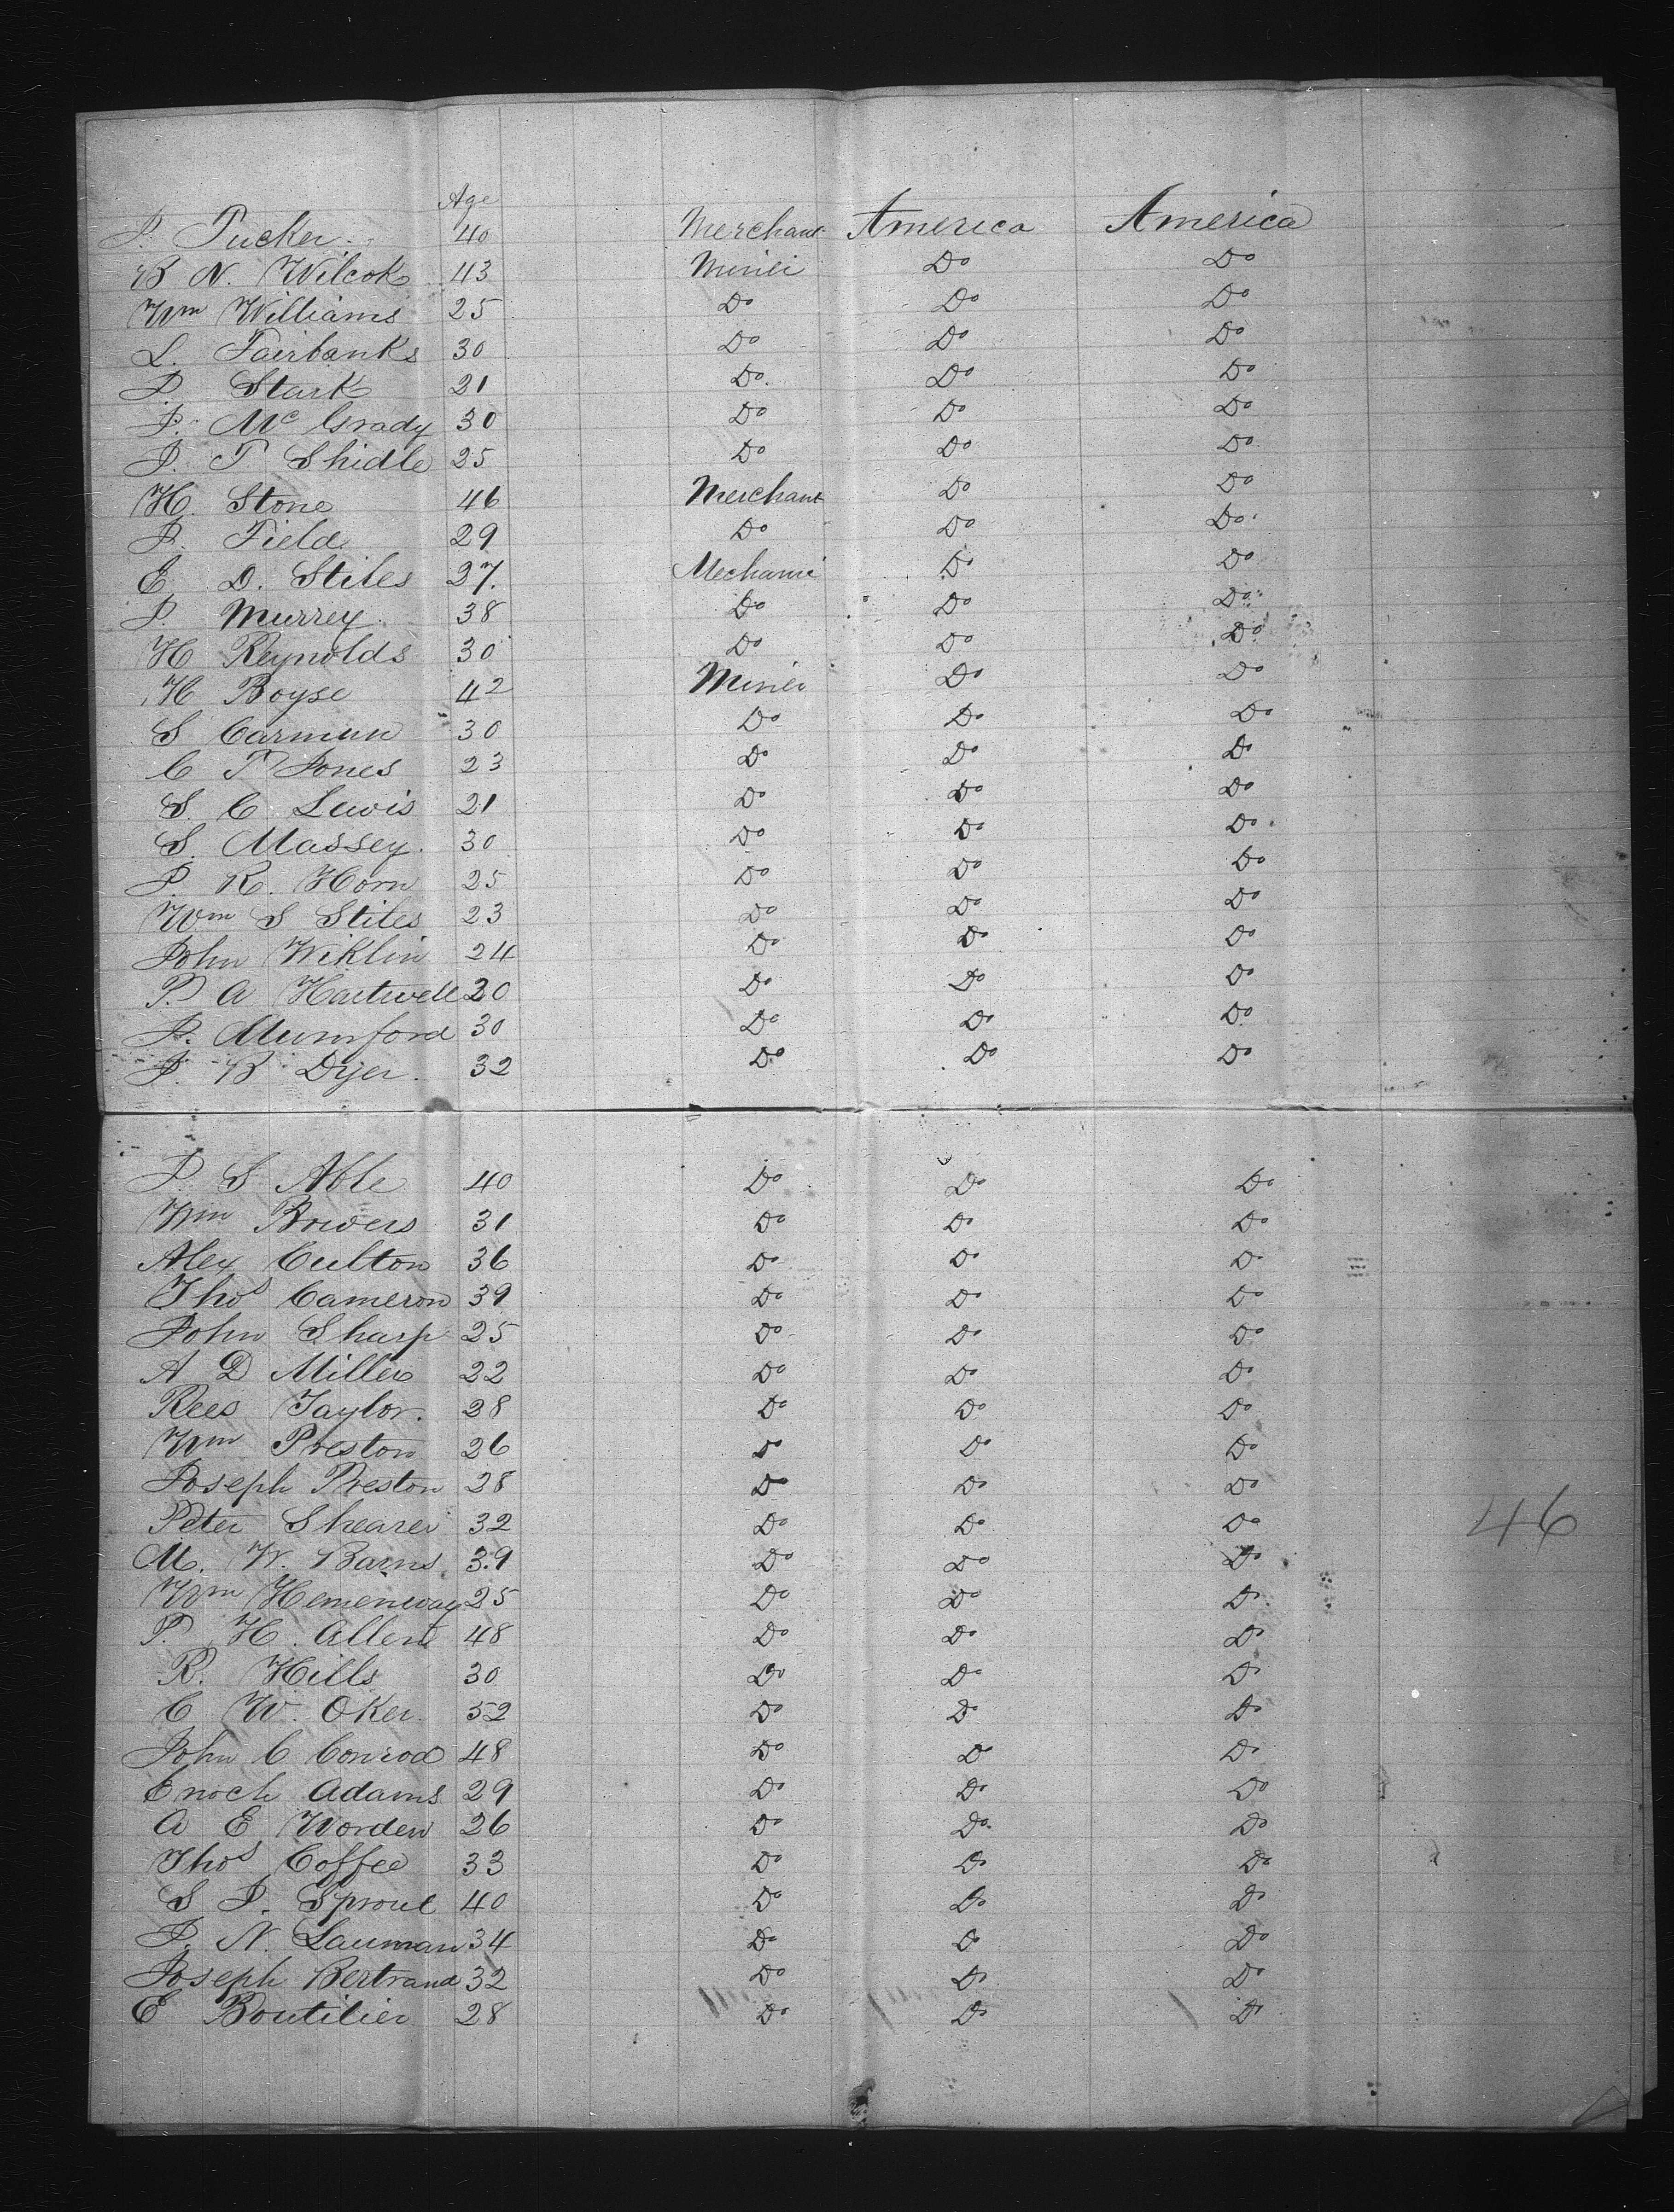 Age
J. Tucker. 40 Merchant America America
B N. Wilcok 43 Miner Do Do
Wm Williams 25 Do Do Do
L. Fairbanks 30 Do Do Do
J. Stark 21 Do. Do Do
J. Mc Grady 30 Do Do Do
J. T Shidle 25 Do Do Do
H. Stone 46 Merchant Do Do
J. Field 29 Do Do Do
E D. Stiles 27. Mechanic Do Do
J. Murrey 38 Do Do Do
H Reynolds 30 Do Do Do
H Boyse 42 Miner Do Do
S Carman 30 Do Do Do
C T Jones 23 Do Do Do
S. C. Lewis 21 Do Do Do
S. Massey. 30 Do Do Do
J. R. Horn 25 Do Do Do
Wm S Stiles 23 Do Do Do
John Wiklin 24 Do Do Do
P. A Hartwell 20 Do Do Do
J. Mumford 30 Do Do Do
J. B Dyer. 32 Do Do Do
J S Able 40 Do Do Do
Wm Bowers 31 Do Do Do
Alex Culton 36 Do Do Do
Thos Cameron 39 Do Do Do
John Sharp 25 Do Do Do
A D Miller 22 Do Do Do
Rees Taylor. 28 Do Do Do
Wm Preston 26 Do Do Do
Joseph Preston 28 Do Do Do
Peter Shearer 32 Do Do Do
M. W. Barns 39 Do Do Do
Wm Hemenway 25 Do Do Do
P. H. Allen 48 Do Do Do
R. Hills 30 Do Do Do
C W. Oker. 52 Do Do Do
John C Conrod 48 Do Do Do
Enoch Adams 29 Do Do Do
A E Worden 26 Do Do Do
Thos Coffee 33 Do Do Do
S J. Sproul 40 Do Do Do
J. N. Lauman 34 Do Do Do
Joseph Bertrand 32 Do Do Do
E Boutilier 28 Do Do Do
46